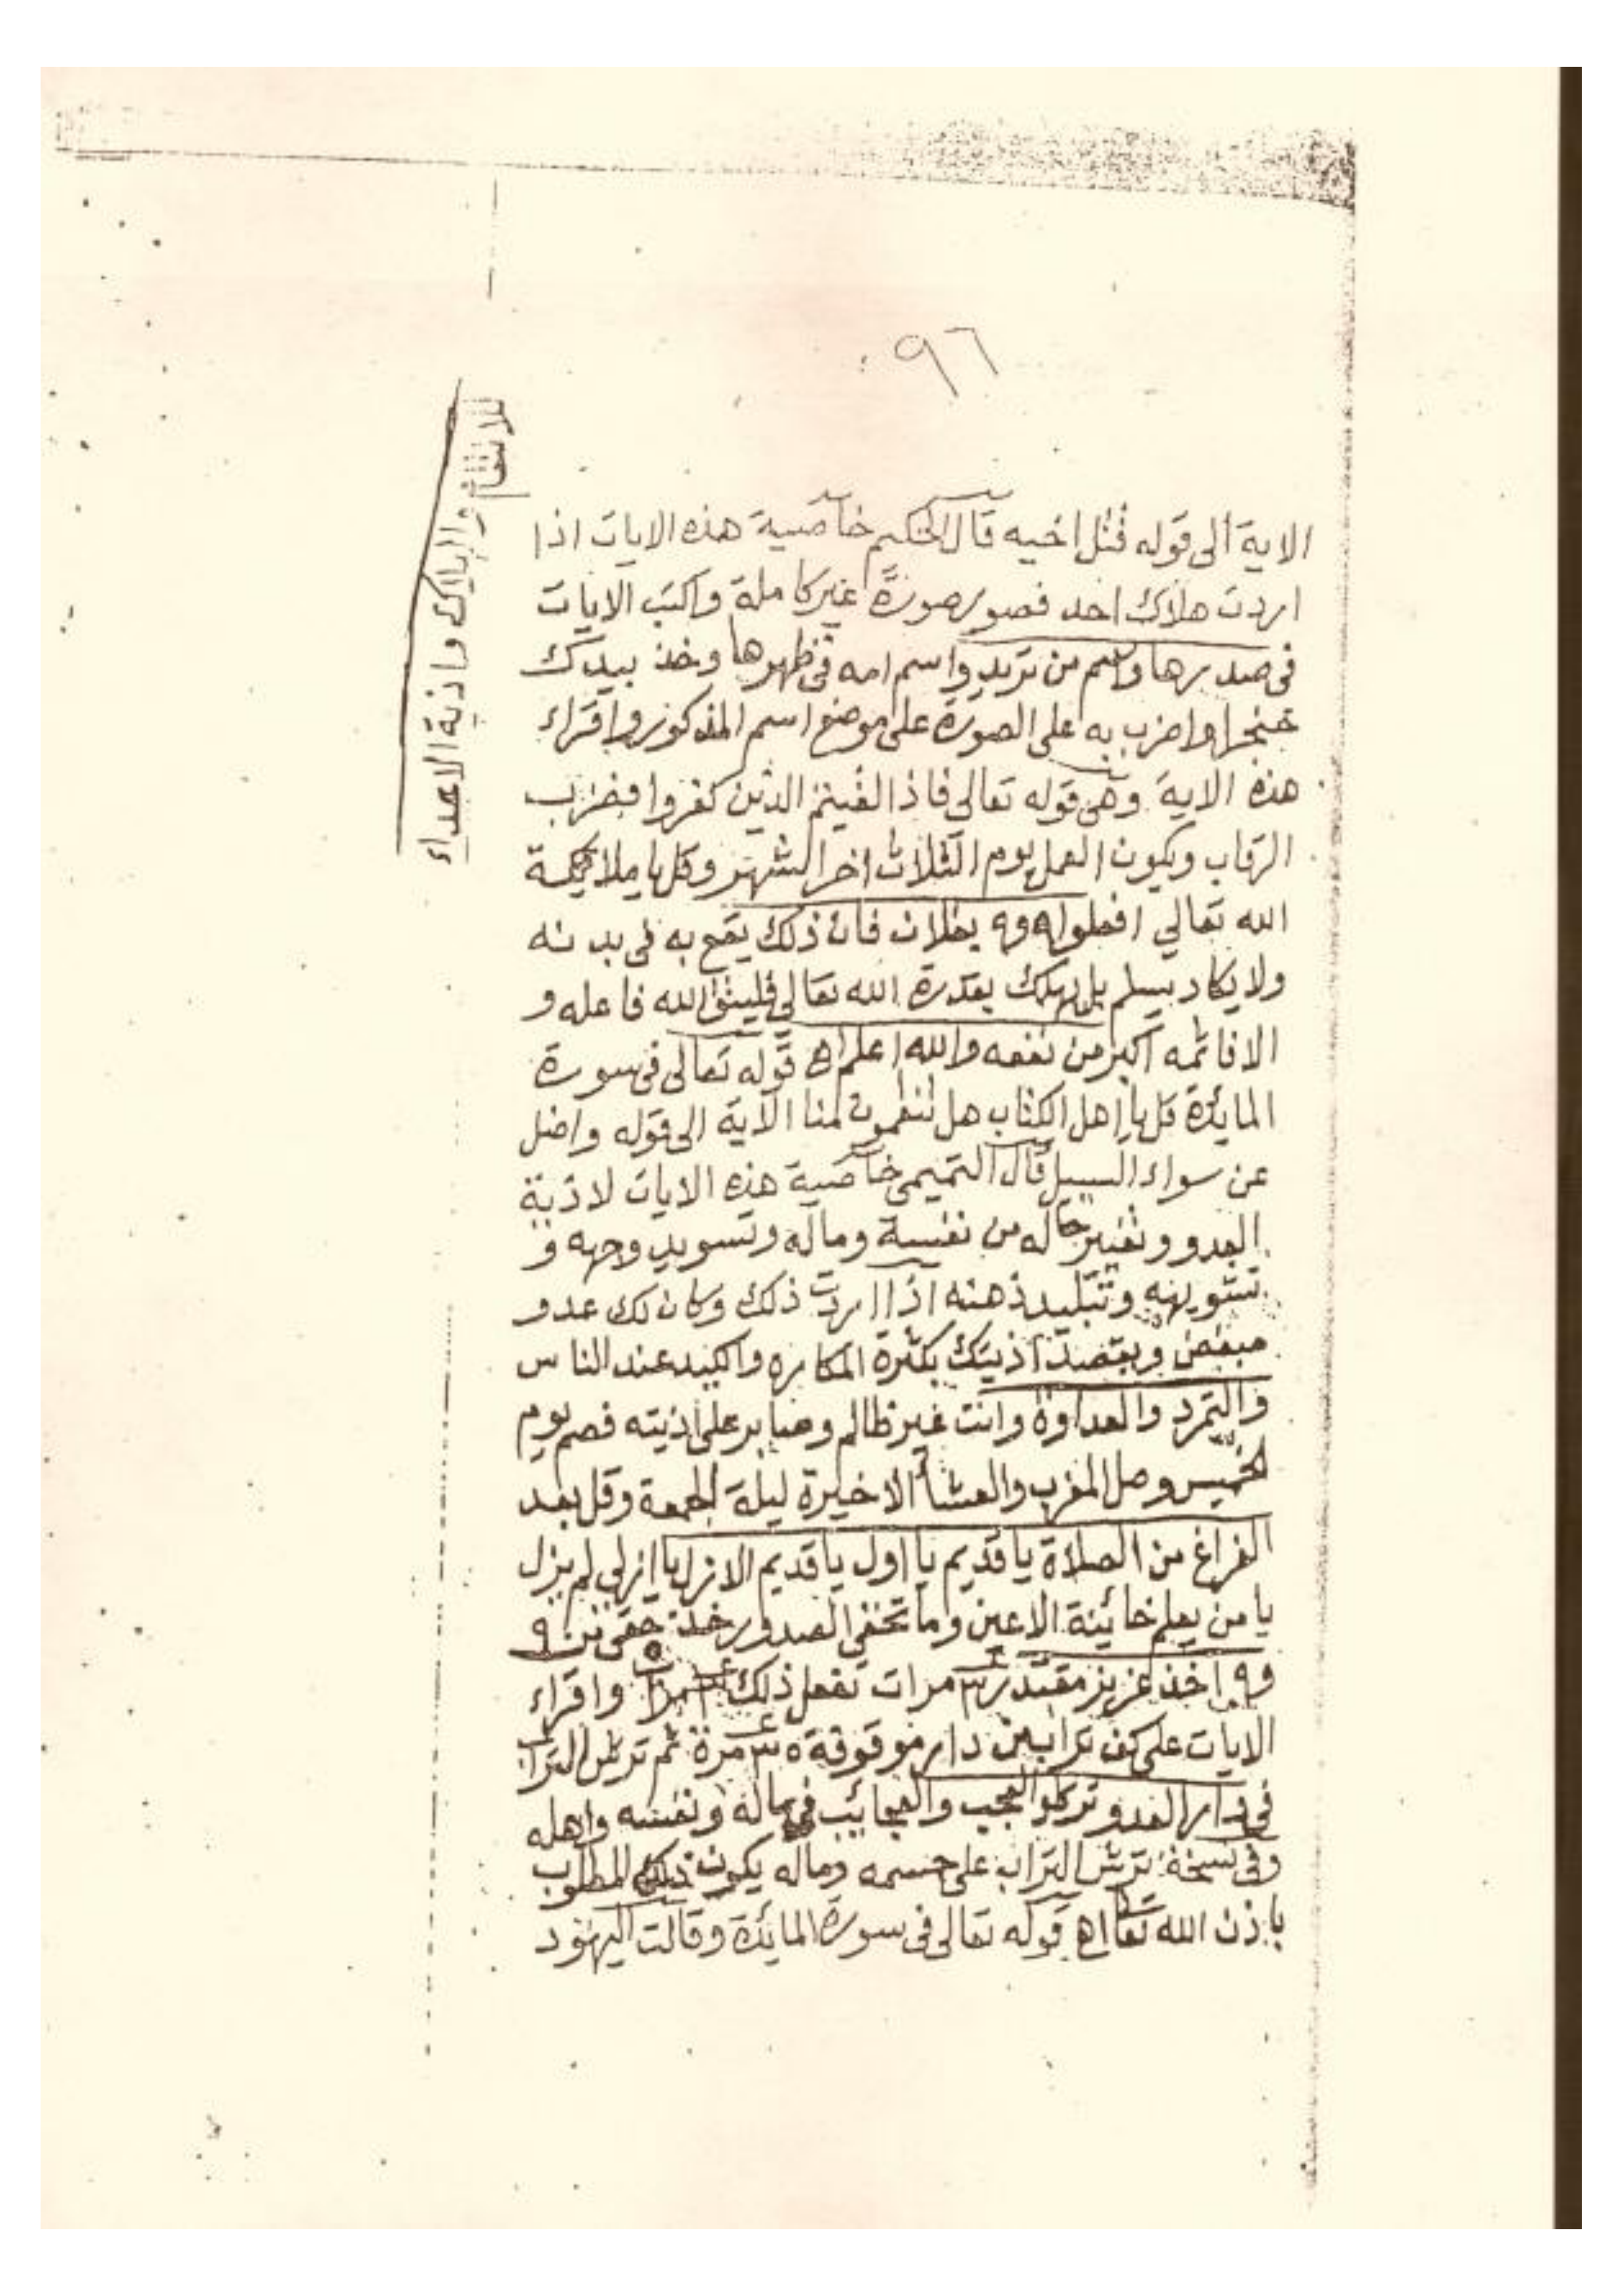 ٩٦
للانتقام والهلاك واذية الاعداء
الاية الى قوله قتل اخيه قال الحكيم خاصية هذه الايات اذا
اردت هلاك احد فصور صورة غير كاملة واكتب الايات
فى صدرها واسم من تريد واسم امه فى ظهرها وخذ بيدك
خنجرا واضرب به على الصورة على موضع اسم المذكور واقراء
هذه الاية وهى قوله تعالى فاذا لقيتم الذين كفروا فضرب
الرقاب ويكون العمل يوم الثلاث اخر الشهر وقل يا ملائكة
الله تعالي افعلوا ٩٩ بفلان فان ذلك يقع به فى بدنه
ولا يكاد يسلم بل يهلك بقدرة الله تعالي فليتق الله فاعله و
الا فاثمه اكبر من نفعه والله اعلم اه قوله تعالى فى سورة
المايئدة قل يا اهل الكتاب هل تنقمون منا الاية الى قوله واضل
عن سواء السبيل قال التميمى خاصية هذه الايات لاذية
العدو وتغير حاله من نفسة وماله وتسويد وجهه و
تشويهه وتبليد ذهنه اذا اردت ذلك وكان لك عدو
مبغض ويقصد اذيتك بكثرة المكاره والكيد عند الناس
والتمرد والعداوة وانت غير ظالم وصابر على اذيته فصم يوم
الخميس وصل المغرب والعشا الاخيرة ليلة الجمعة وقل بعد
الفراغ من الصلاة يا قديم يا اول يا قديم الازل يا ازلي لم يزل
يا من يعلم خائينة الاعين وما تخفى الصدور خذ حقى من ٩
و٩ اخذ عزيز مقتدر ٣ مرات تفعل ذلك مرات واقراء
الايات على كف تراب من دار موقوفة ٣٥ مرة ثم ترش التراب
فى دار العدو ترى العجب والعجائب فى ماله ونفسه واهله
وفى نسخة ترش التراب على جسمه وماله يكون ذلك المطلوب
باذن الله تعا اه قوله تعالى فى سورة المائدة وقالت اليهود